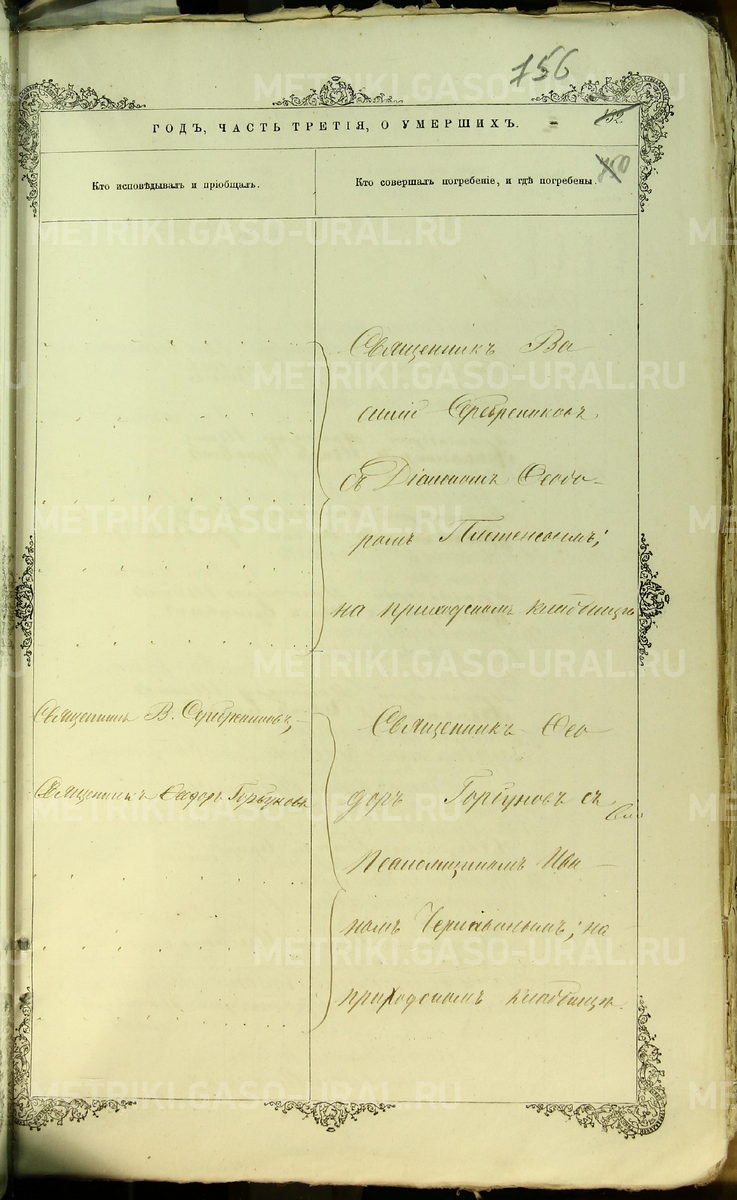 156
ГОДЪ, ЧАСТЬ ТРЕТІЯ, О УМЕРШИХЪ.
192.
150
Кто исповѣдывалъ и пріобщалъ.
Кто совершалъ погребеніе, и гдѣ погребены.
Священникъ Ва
силій Серебрениковъ
съ Діакономъ Ѳеодо-
ромъ
на приходскомъ кладбищѣ
Священникъ В. Серебрениковъ,
Священникъ Ѳеодоръ Горбуновъ
Священникъ Ѳео
доръ Горбуновъ съ
Псаломщикомъ Ива
номъ Чернавинымъ; на
приходскомъ кладбищѣ.
METRIKI.GASO-URAL.RU